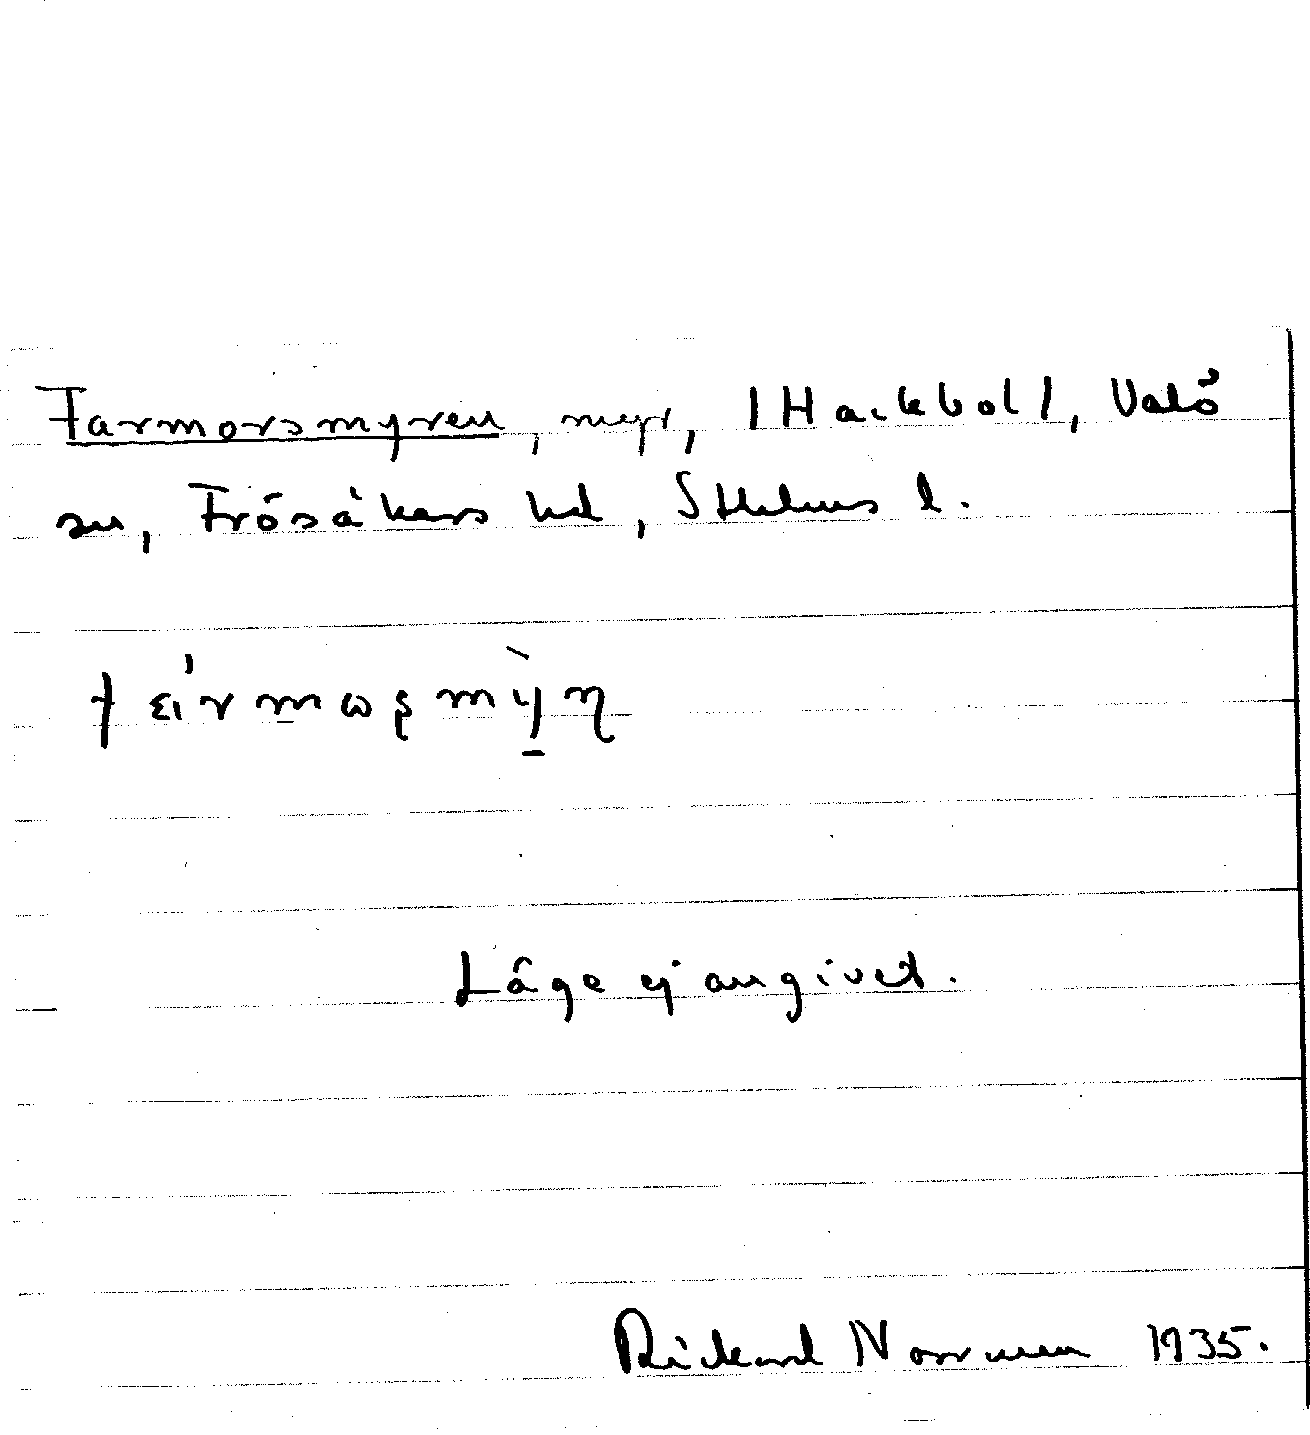 Farmorsmyren, myr, /Hackbol/, Valö
sn, Frösåkers hd, Sthlms l.
Läge ej angivet.
Rickard Norrman 1935.